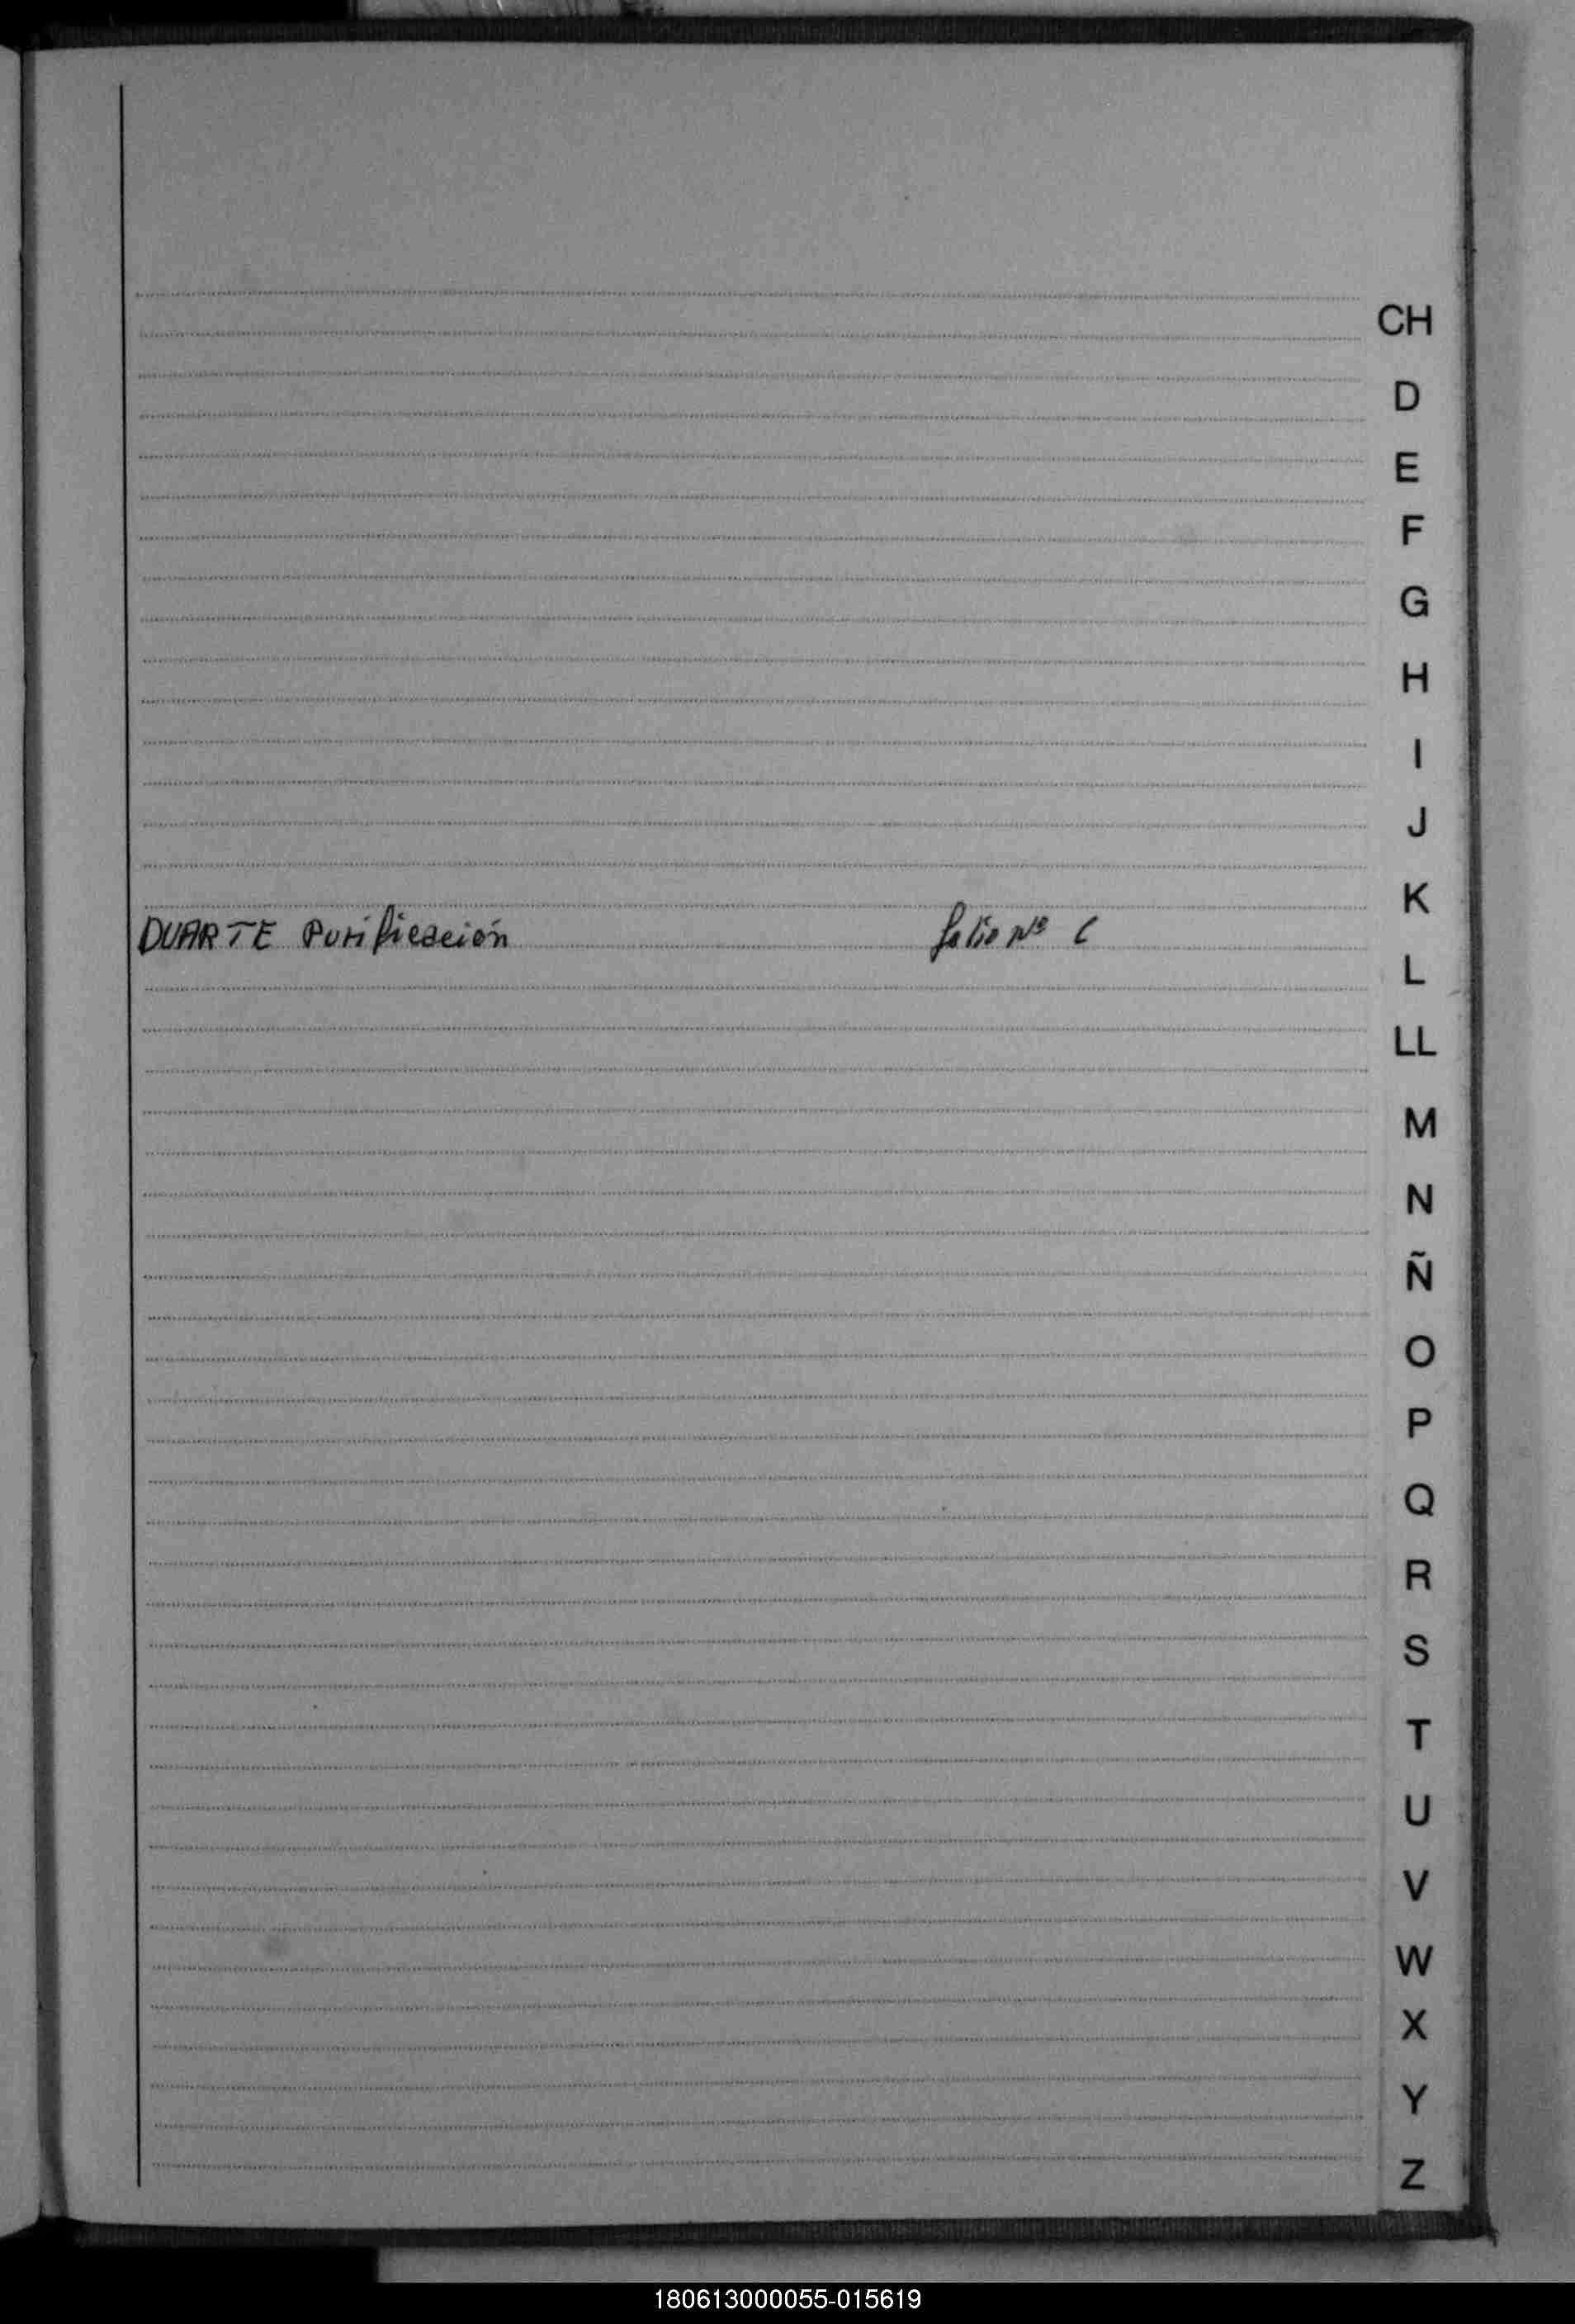 CH
D
E
F
G
H
I
J
K
DUARTE Purificación folio Nº 6
L
LL
M
N
Ñ
O
P
Q
R
S
T
U
V
W
X
Y
Z
180613000055-015619